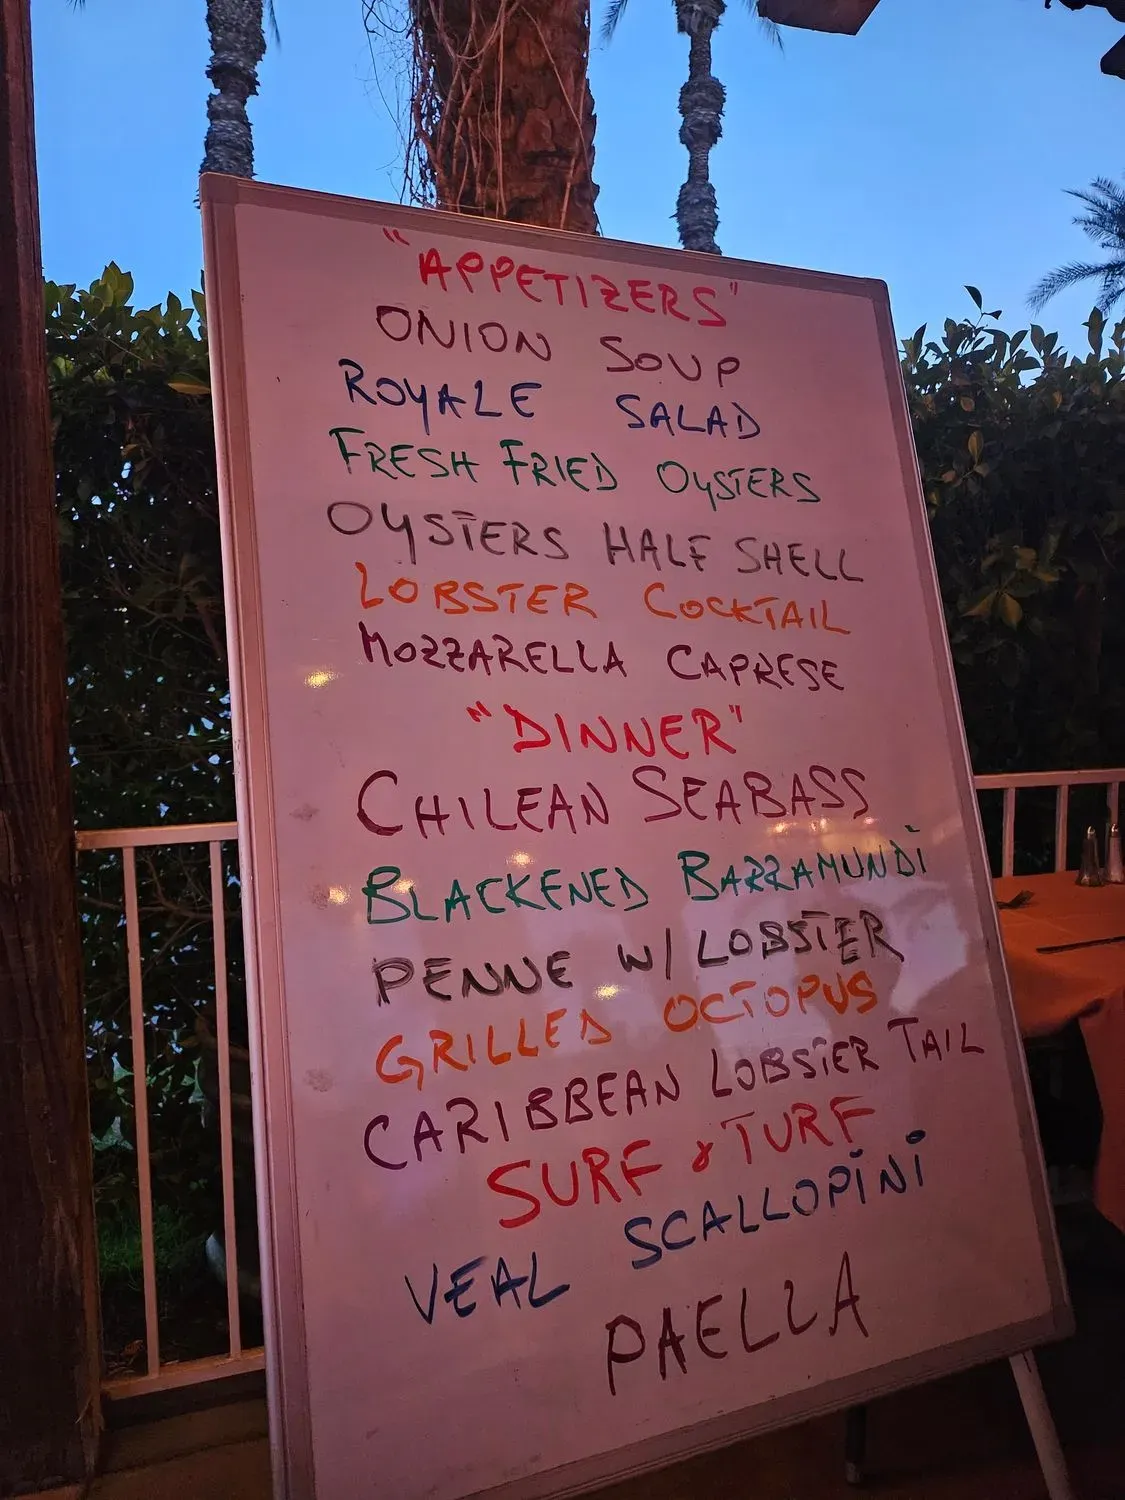 "APPETIZERS"
ONION SOUP
ROYALE SALAD
FRESH FRIED OYSTERS
OYSTERS HALF SHELL
LOBSTER COCKTAIL
MOZZARELLA CAPRESE
"DINNER"
CHILEAN SEABASS
BLACKENED BARRAMUNDI
PENNE W/ LOBSTER
GRILLED OCTOPUS
CARIBBEAN LOBSTER TAIL
SURF & TURF
VEAL SCALLOPINI
PAELLA